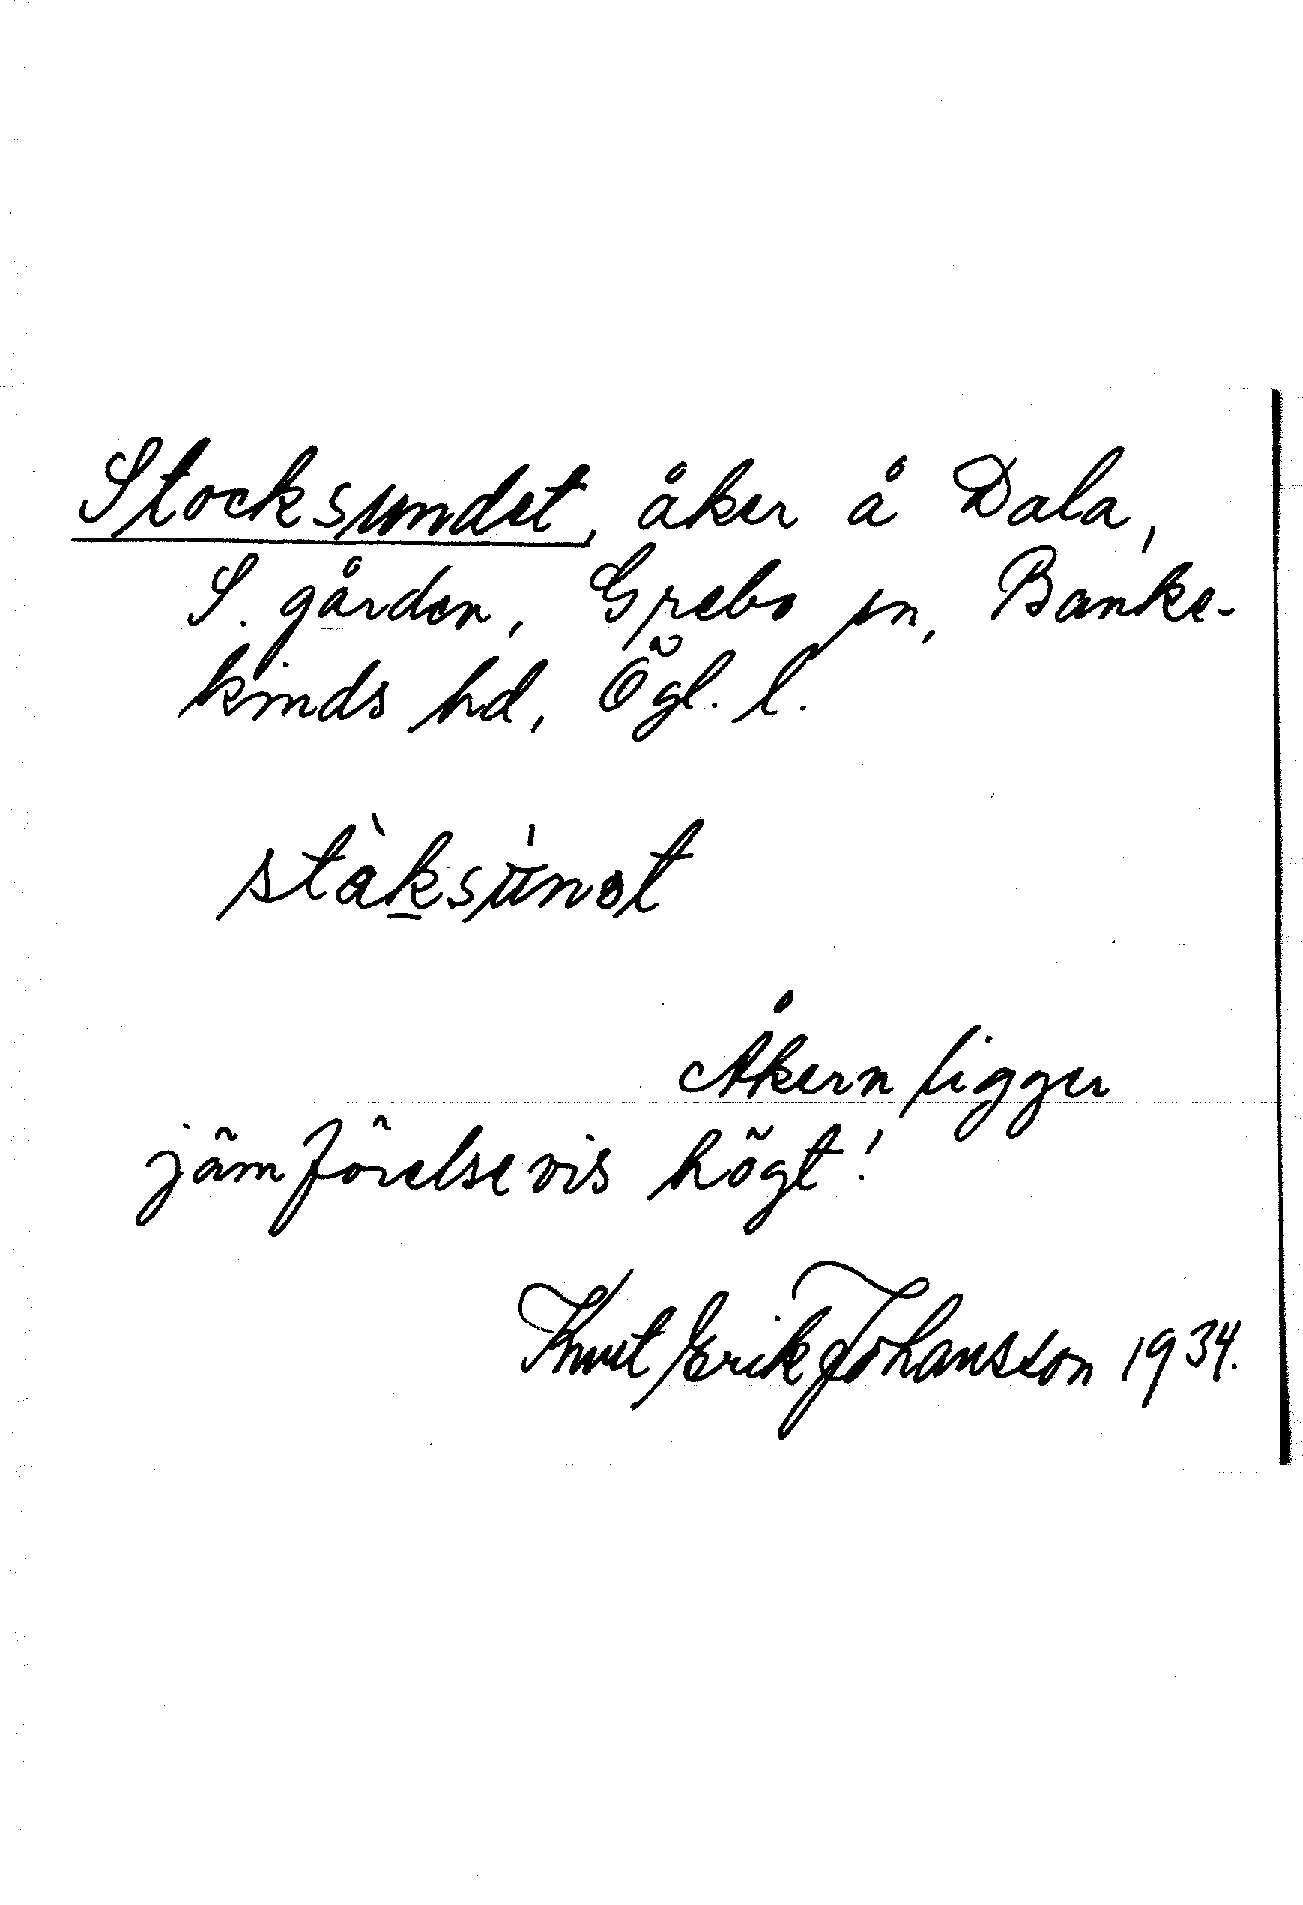 Stocksundet, åker å Dala,
S. gården, Grebo sn, Banke-
kinds hd, Ögl. l.
stàksún�t
Åkern ligger
jämförelsevis högt!
Knut Erik Johansson 1934.